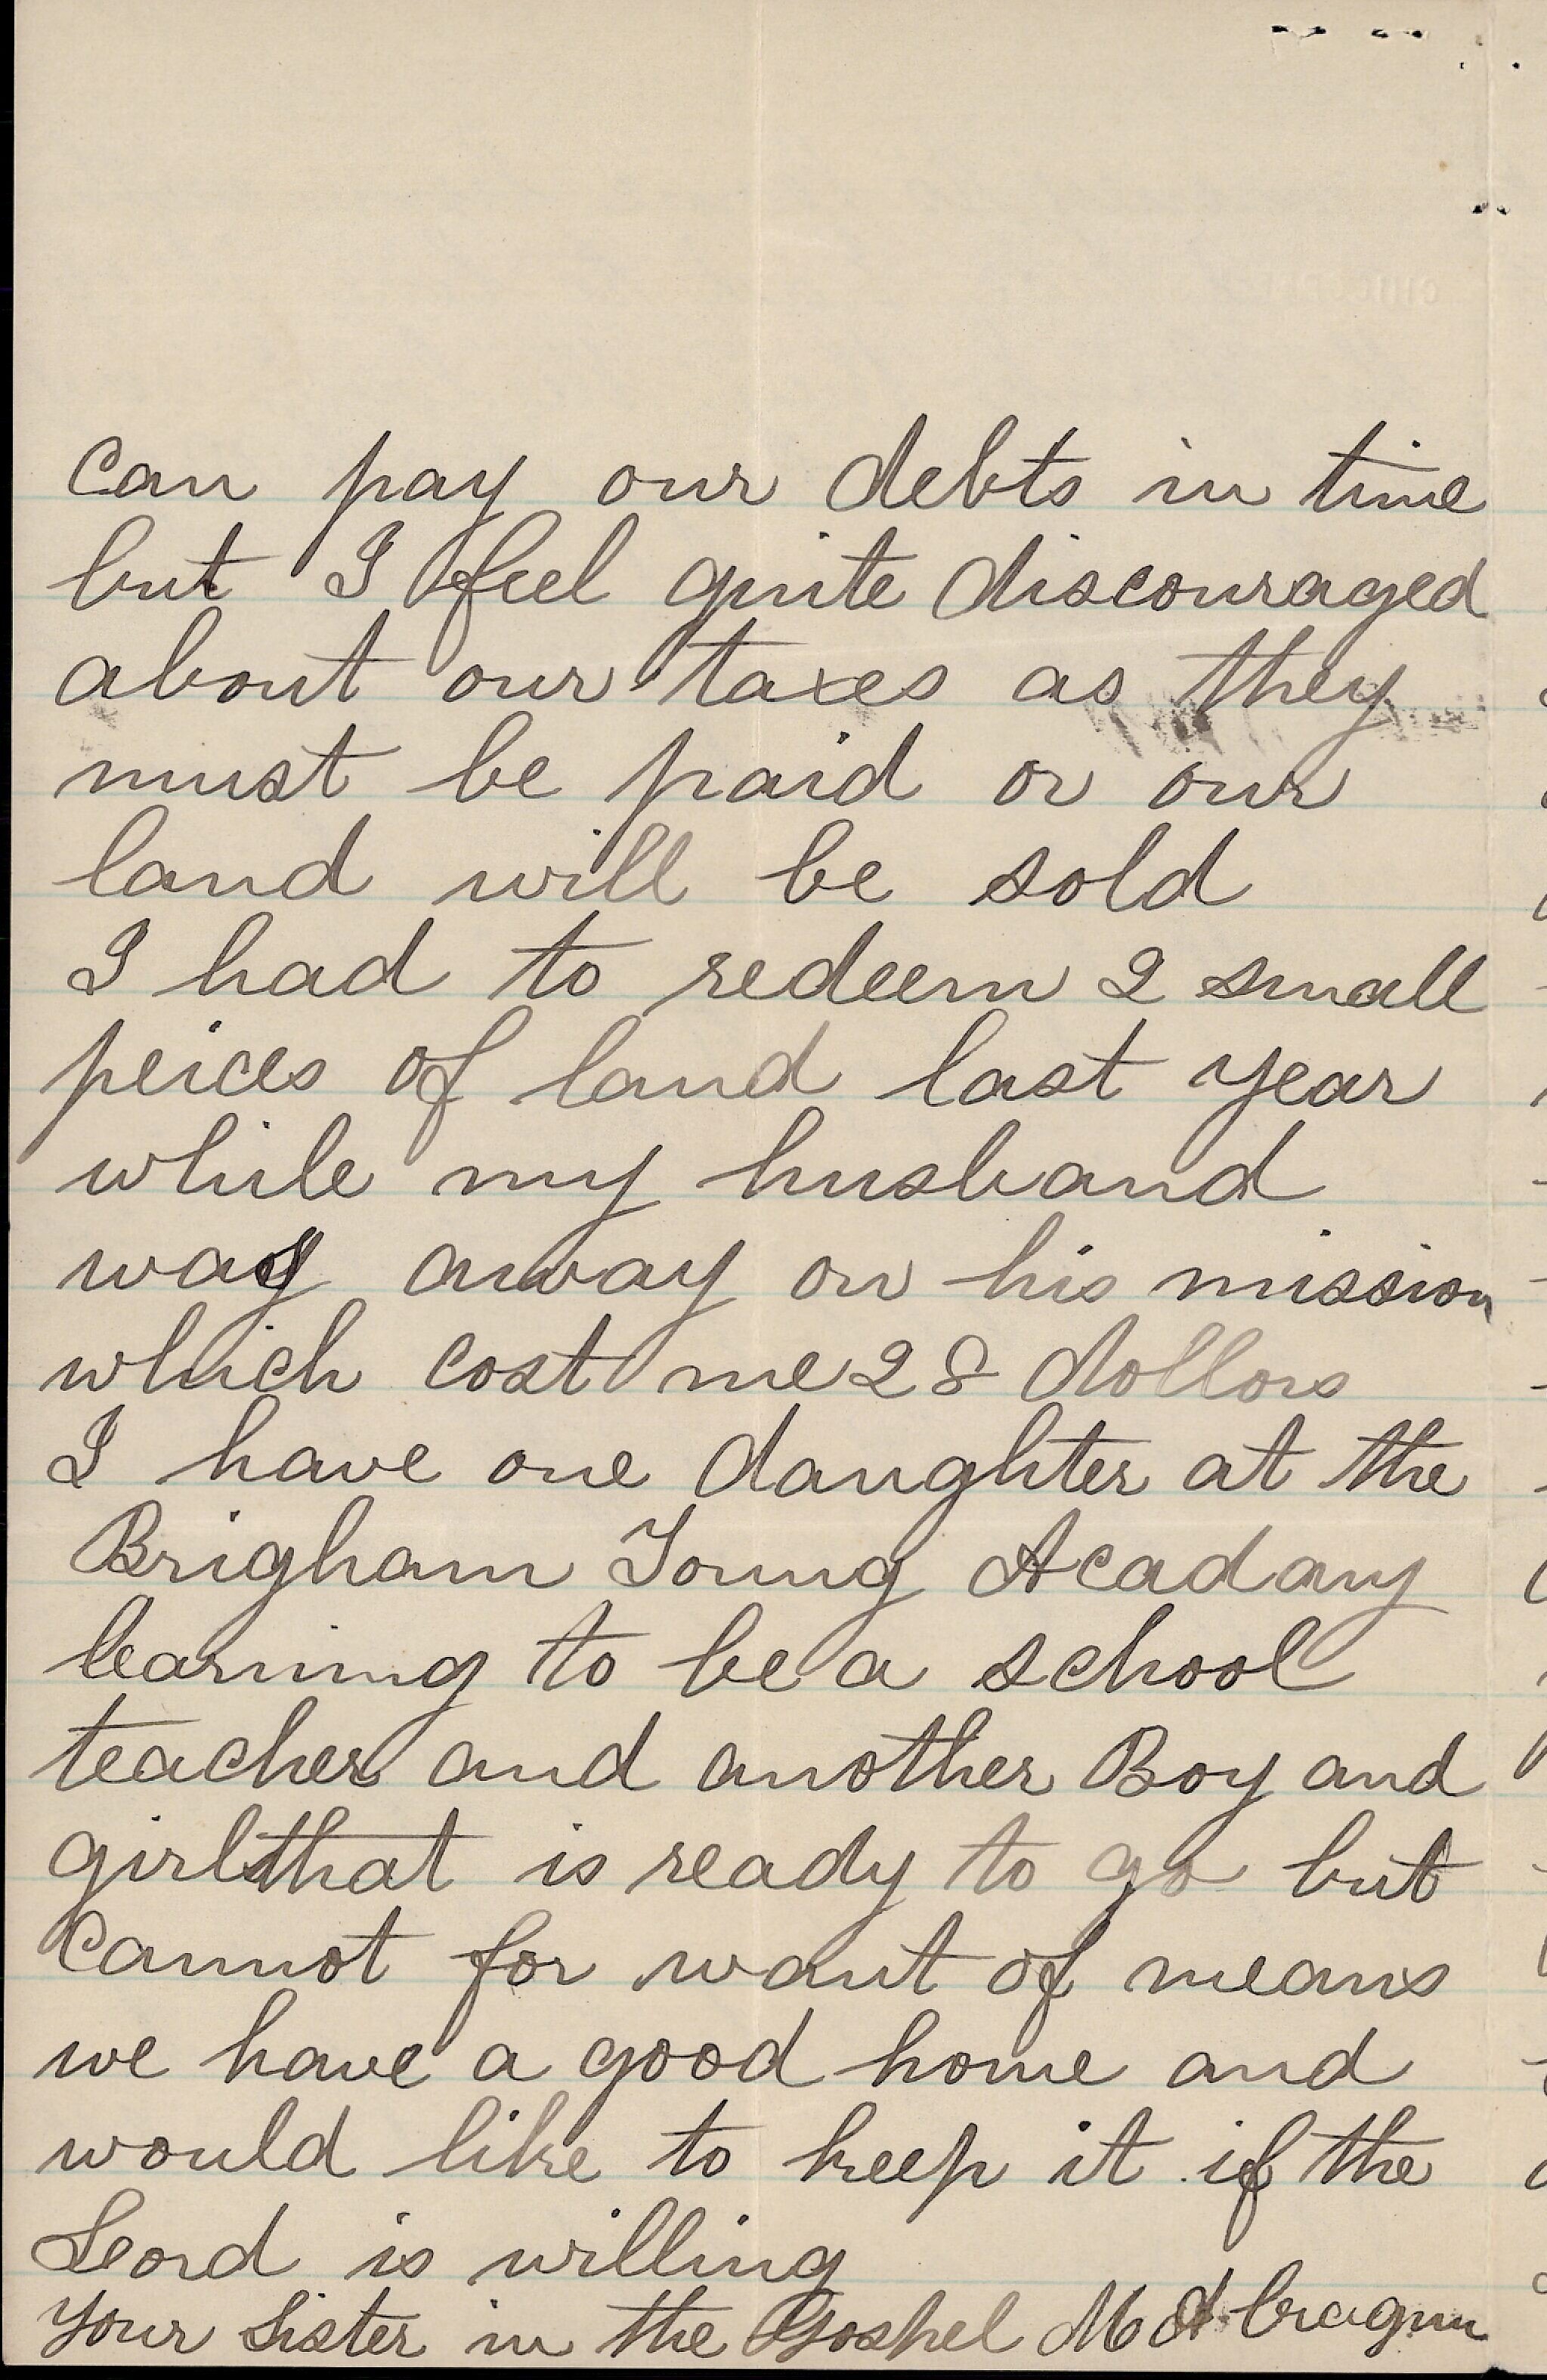 can pay our debts in time
but I feel quite discouraged
about our taxes as they
must be paid or our
land will be sold
I had to redeem 2 small
peices of land last year
while my husband
was away on his mission
which cost me 28 dollors
I have one daughter at the
Brigham Young Acadamy
learning to be a school
teacher and another Boy and
girl that is ready to go but
cannot for want of means
we have a good home and
would like to keep it if the
Lord is willing
Your Sister in the Gospel M A Cragun